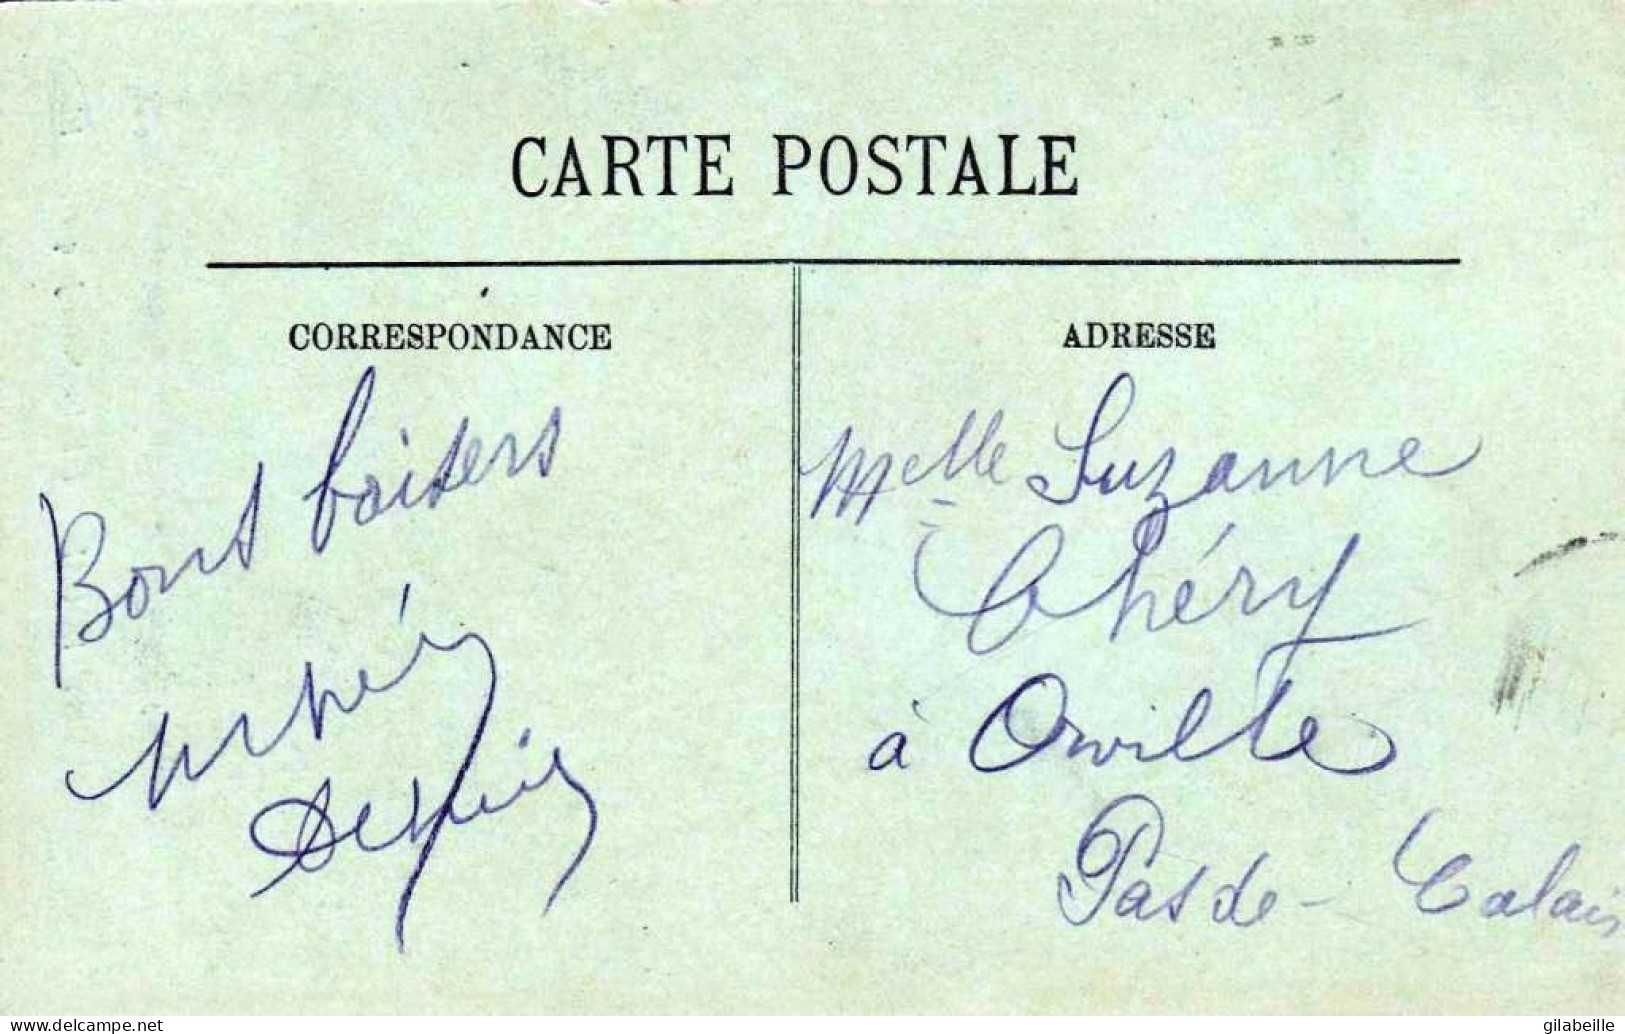 CARTE POSTALE
CORRESPONDANCE
Bons baisers
ADRESSE
Melle Suzanne
Théry
à Orville
Pas de-Calais
gilabeille